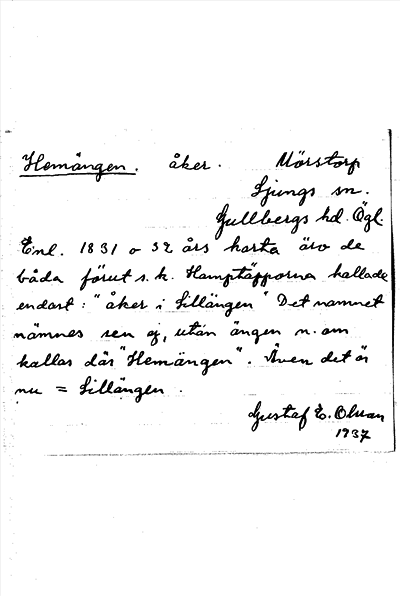 Hemängen. åker. Mörstorp
Ljungs sn.
Gullbergs hd. Ögl.
Enl. 1831 o 32 års karta äro de
båda förut s. k. Hamptäpporna kallade
endast: "åker i Lillängen" Det namnet
nämnes sen ej, utan ängen n. om
kallas där "Hemängen". Även det är
nu = Lillängen.
Gustaf E. Olman
1937